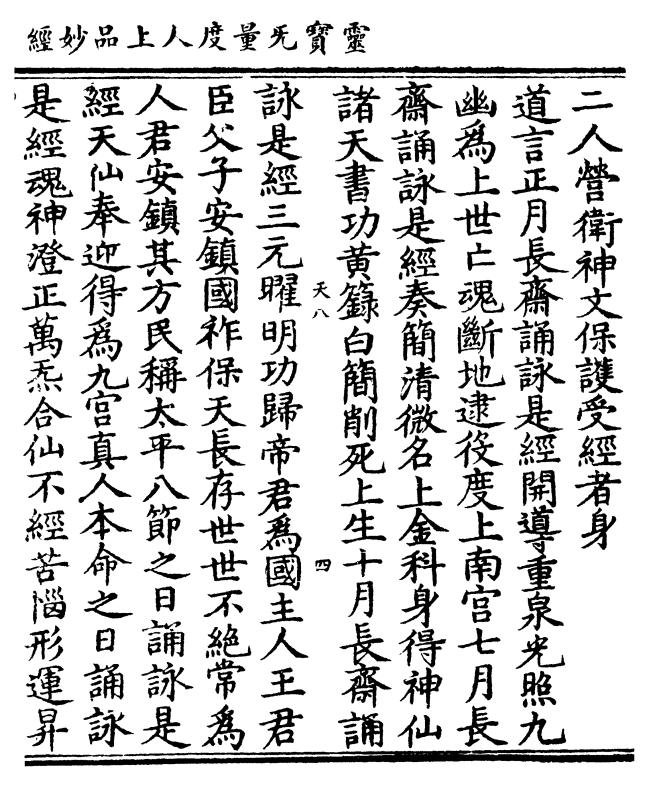 靈寶旡量度人上品妙經
二人營衛神文保護受經者身
道言正月長齋誦詠是經開導重泉光照九
幽爲上世亡魂斷地逮役度上南宮七月長
齋誦詠是經奏簡清微名上金科身得神仙
諸天書功黄籙白簡削死上生十月長齋誦
天八
四
詠是經三元曜明功歸帝君爲國主人王君
臣父子安鎮國祚保天長存世世不絕常爲
人君安鎮其方民稱太平八節之日誦詠是
經天仙奉迎得爲九宮真人本命之日誦詠
是經魂神澄正萬炁合仙不經苦惱形運昇